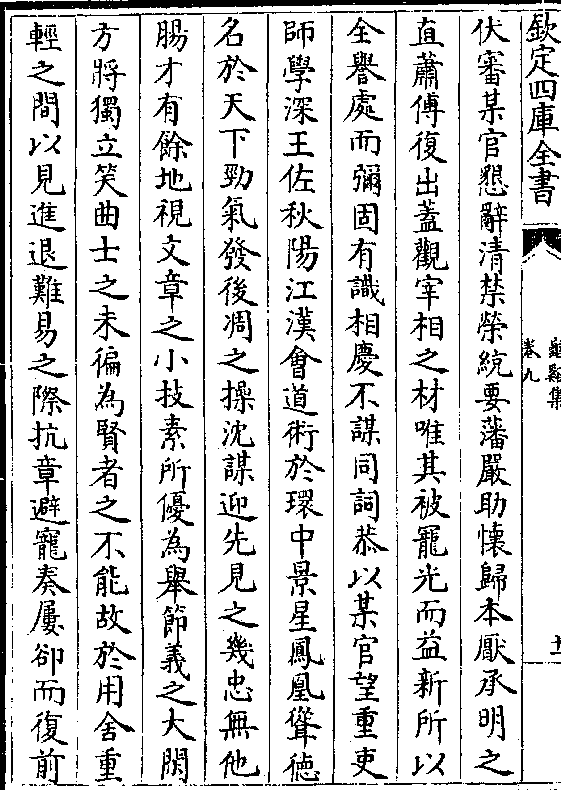 欽定四庫全書
龜谿集
卷九
伏審某官懇辭清禁榮綂要藩嚴助懐歸本厭承明之
直蕭傅復出蓋觀宰相之材唯其被寵光而益新所以
全譽處而彌固有識相慶不謀同詞恭以某官望重吏
師學深王佐秋陽江漢會道術於環中景星鳳凰聳徳
名於天下勁氣發後凋之操沈謀迎先見之幾忠無他
腸才有餘地視文章之小技素所優為舉節義之大閑
方將獨立笑曲士之未徧為賢者之不能故於用舍重
輕之間以見進退難易之際抗章避寵奏屢卻而復前